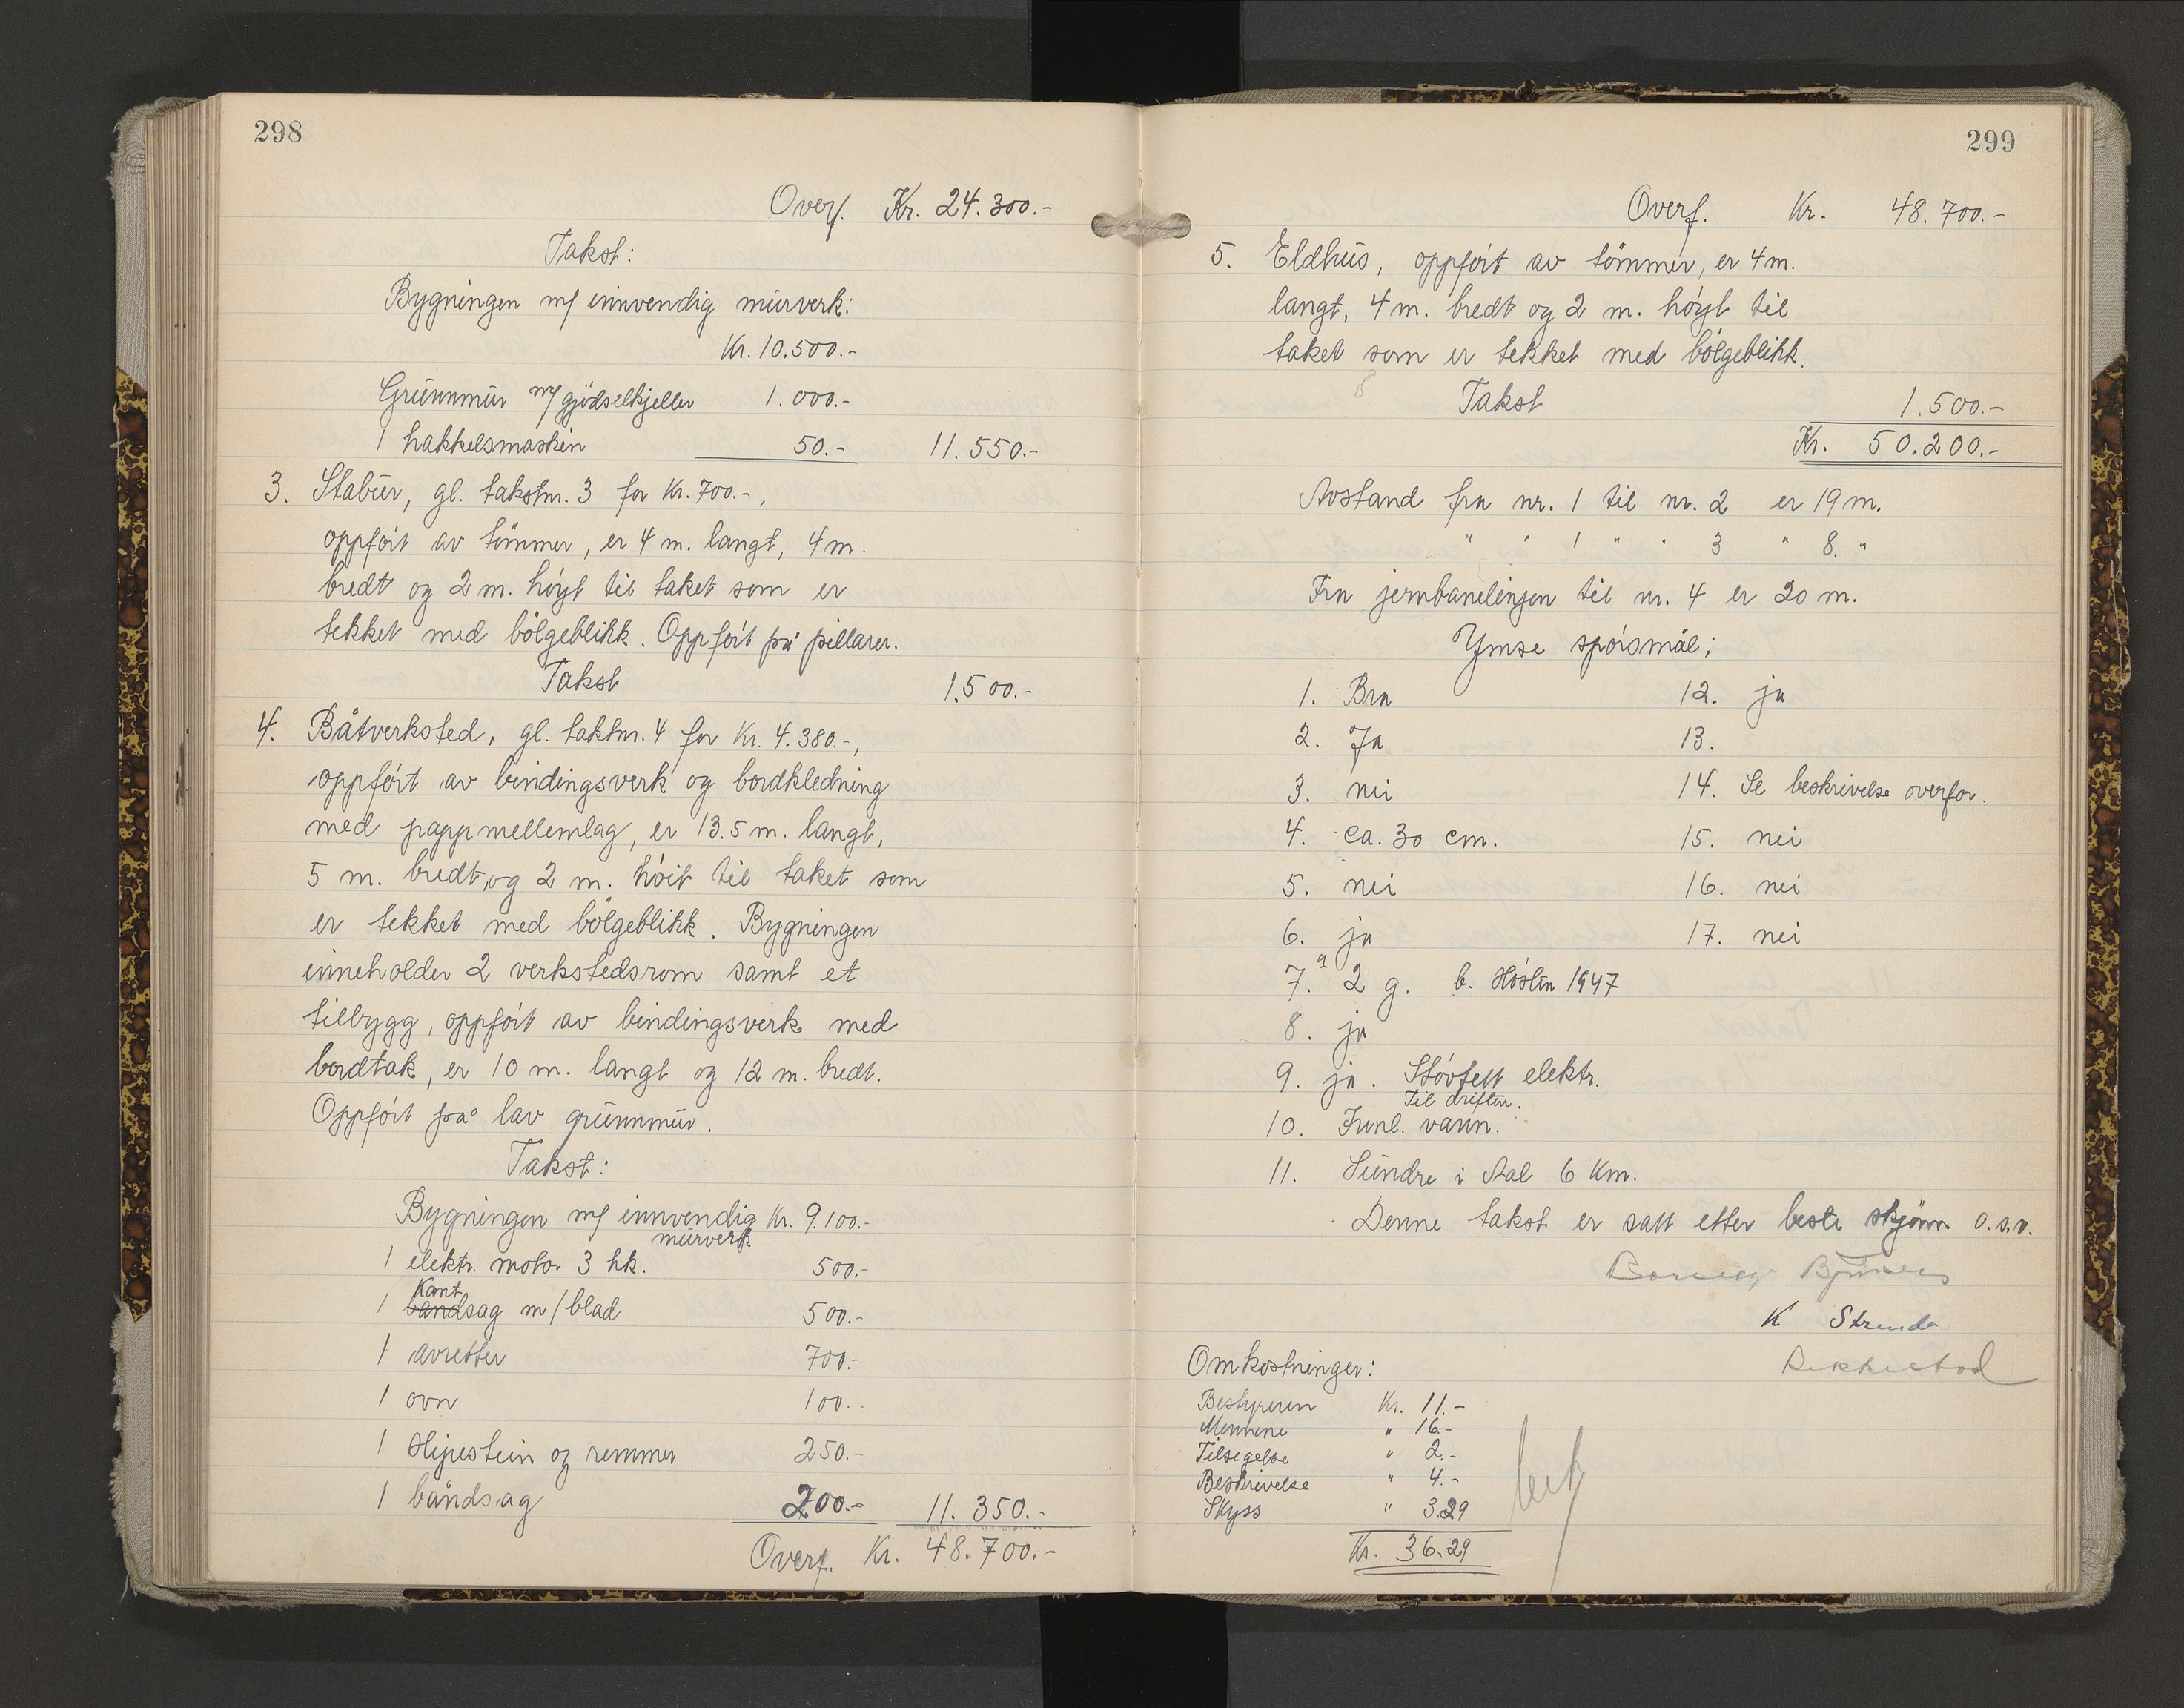 298
Overf. Kr. 24.300.-
Takst:
Bygningen m/ innvendig murverk:
Kr. 10.500.-
Grunnmur m/gjödselkjeller 1.000.-
1 hakkelsmaskin 50.- 11.550.-
3. Stabur, gl. takstnr. 3 for Kr. 700.-,
oppfört av tömmer, er 4 m. langt, 4 m.
bredt og 2 m. höyt til taket som er
tekket med bölgeblikk. Oppfört på pillarer.
Takst 1.500.-
4. Båtverksted, gl. takstnr. 4 for Kr. 4.380.-,
oppfört av bindingsverk og bordkledning
med pappmellemlag, er 13.5 m. langt,
5 m. bredt, og 2 m. höit til taket som
er tekket med bölgeblikk. Bygningen
inneholder 2 verkstedsrom samt et
tilbygg, oppfört av bindingsverk med
bordtak, er 10 m. langt og 12 m. bredt.
Oppfört på lav grunnmur.
Takst:
Bygningen m/ innvendig Kr. 9.100.-
murverk
1 elektr. motor 3 hk. 500.-
Kant
1 bandsag m/blad 500.-
1 avretter 700.-
1 ovn 100.-
1 slipestein og remmer 250.-
1 båndsag 200.- 11.350.-
Overf. Kr. 48.700.-
299
Overf. Kr. 48.700.-
5. Eldhus, oppfört av tömmer, er 4 m.
langt, 4 m. bredt og 2 m. höyt til
taket som er tekket med bölgeblikk.
Takst 1.500.-
Kr. 50.200.-
Avstand fra nr. 1 til nr. 2 er 19 m.
" " 1 " " 3 " 8. "
Fra jernbanelinjen til nr. 4 er 20 m.
Ymse spörsmål:
1. Bra 12. ja
2. Ja 13.
3. nei 14. Se beskrivelse overfor.
4. ca. 30 cm. 15. nei
5. nei 16. nei
6. ja 17. nei
7. a 2 g. b. Hösten 1947
8. ja
9. ja. Stövtett elektr.
Til driften.
10. Innl. vann.
11. Sundre i Aal 6 Km.
Denne takst er satt etter beste skjönn o.s.v.
K Strende
Omkostninger:
Bestyreren Kr. 11.-
Mennene " 16.-
Tilsigelse " 2.-
Beskrivelse " 4.-
Skyss " 3.29
Kr. 36.29